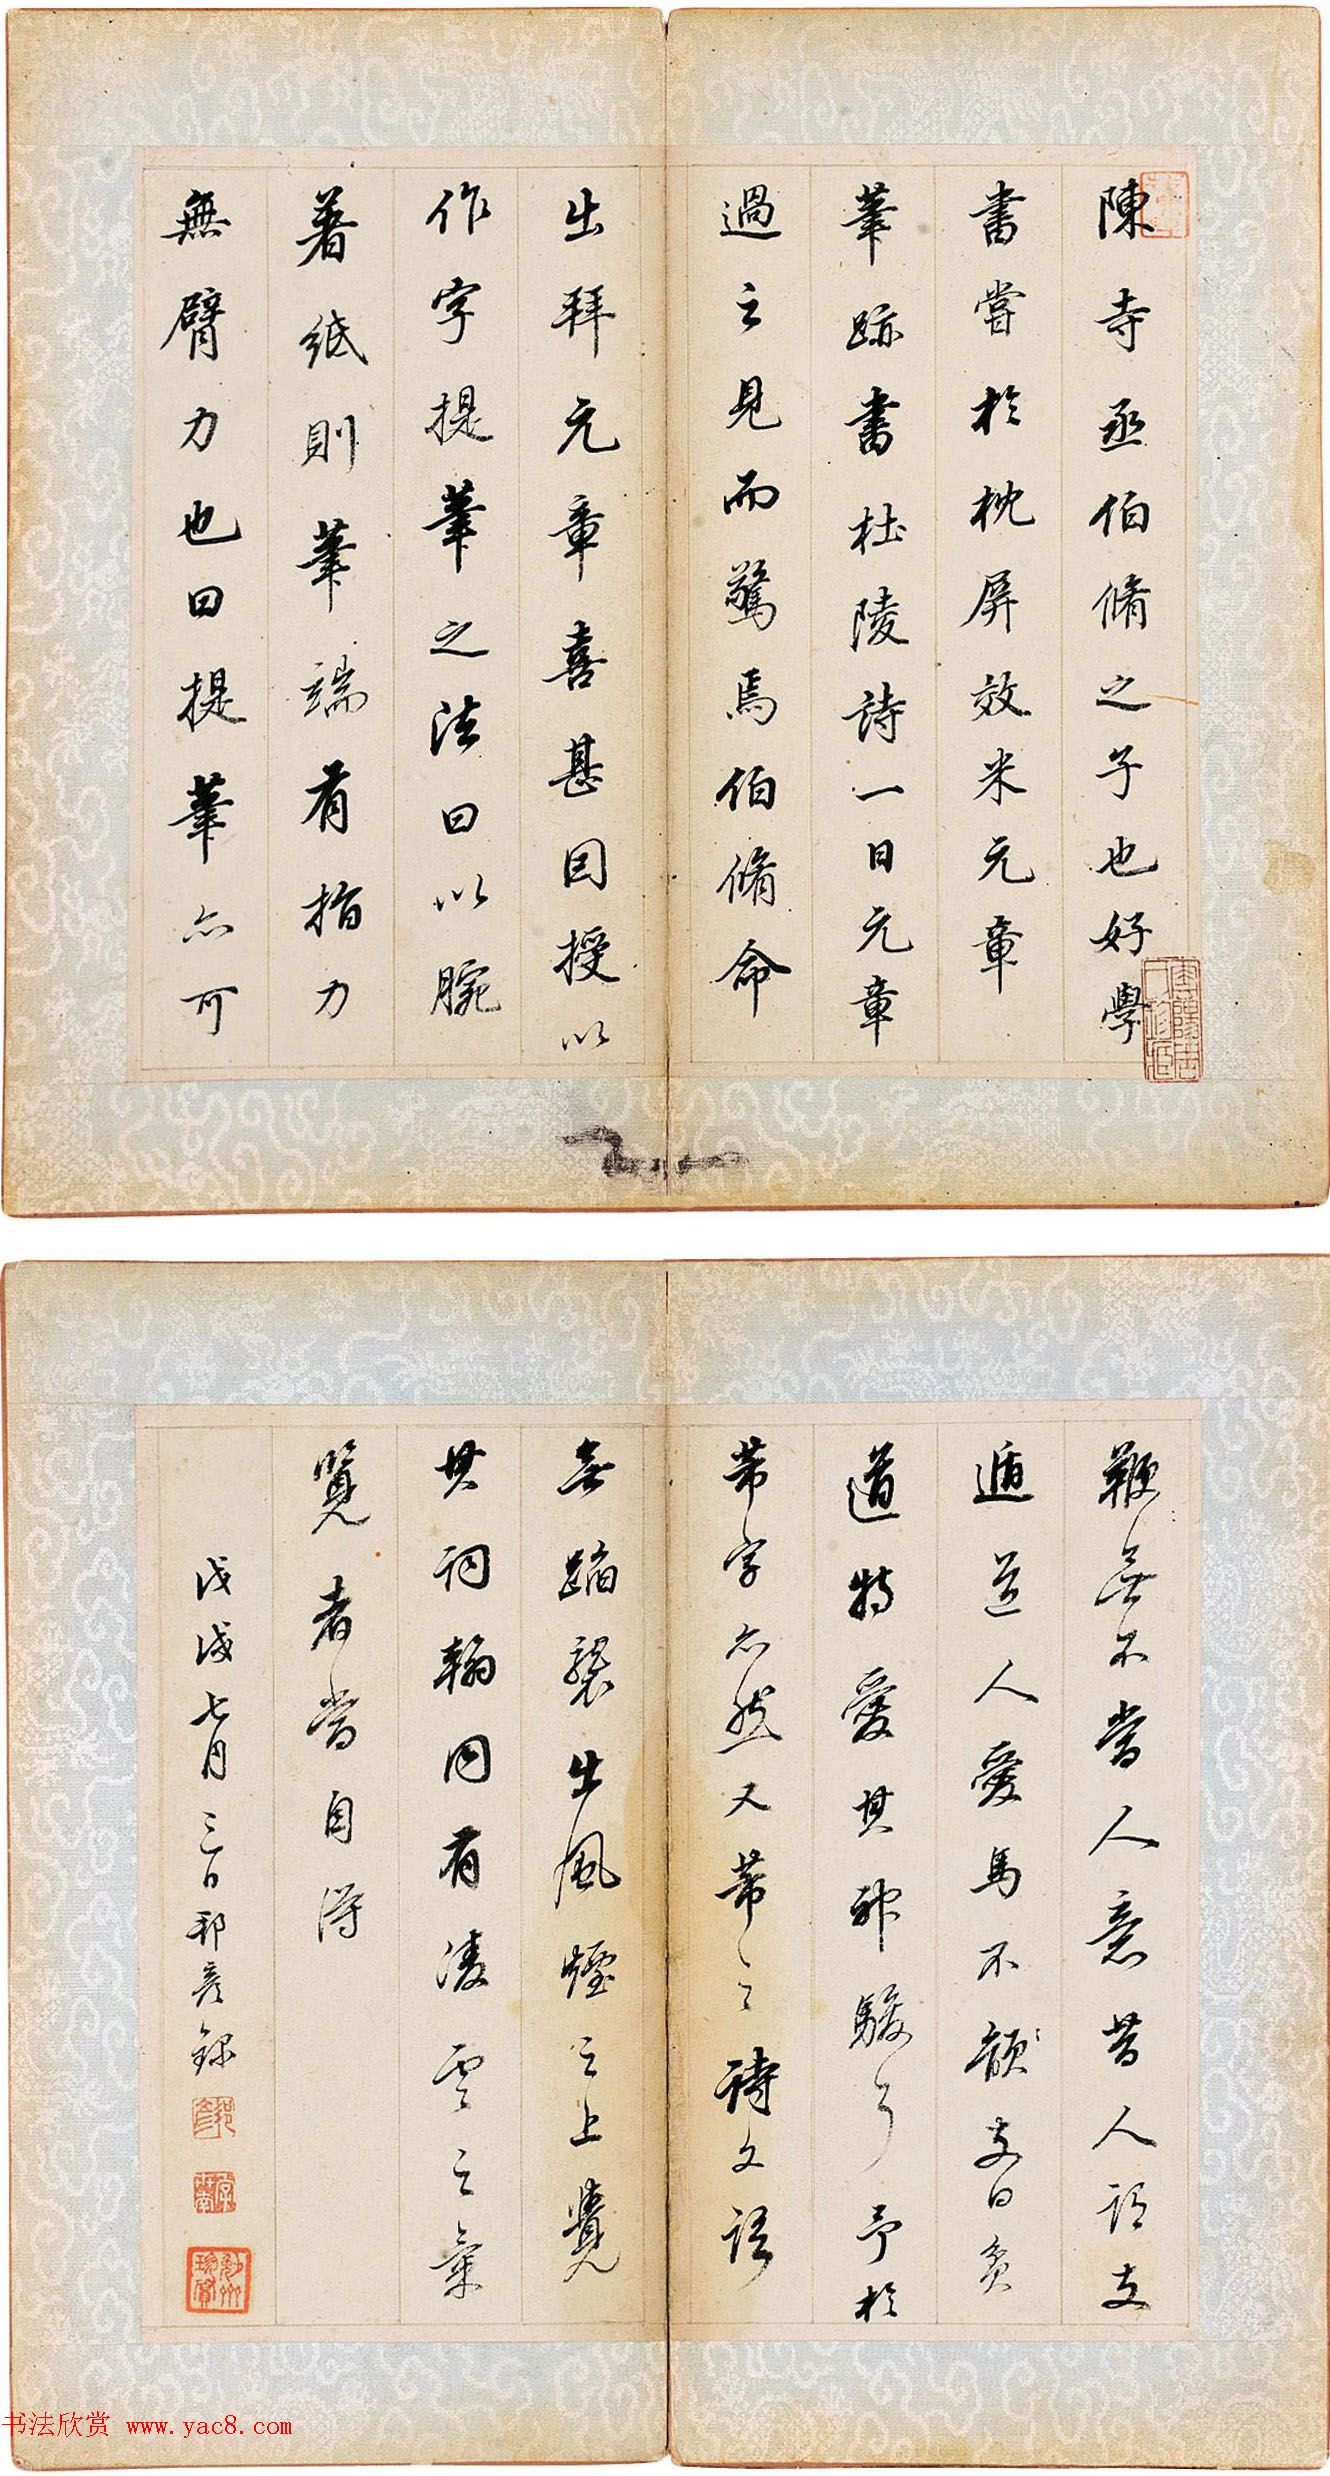 陳寺丞伯脩之子也好學
書嘗於枕屏效米元章
筆跡書杜陵詩一日元章
過之見而驚焉伯脩命
出拜元章喜甚因授以
作字提筆之法曰以腕
著紙則筆端有指力
無臂力也曰提筆亦可
鞭無不當人意昔人謂支
遁道人愛馬不韻支曰貧
道特愛其神駿耳予於
芾字亦然又芾之詩文語
無蹈襲出風煙之上覺
其詞翰同有凌雲之氣
覽者當自得
戊戌七月三日邢彥錄
书法欣赏 www.yac8.com